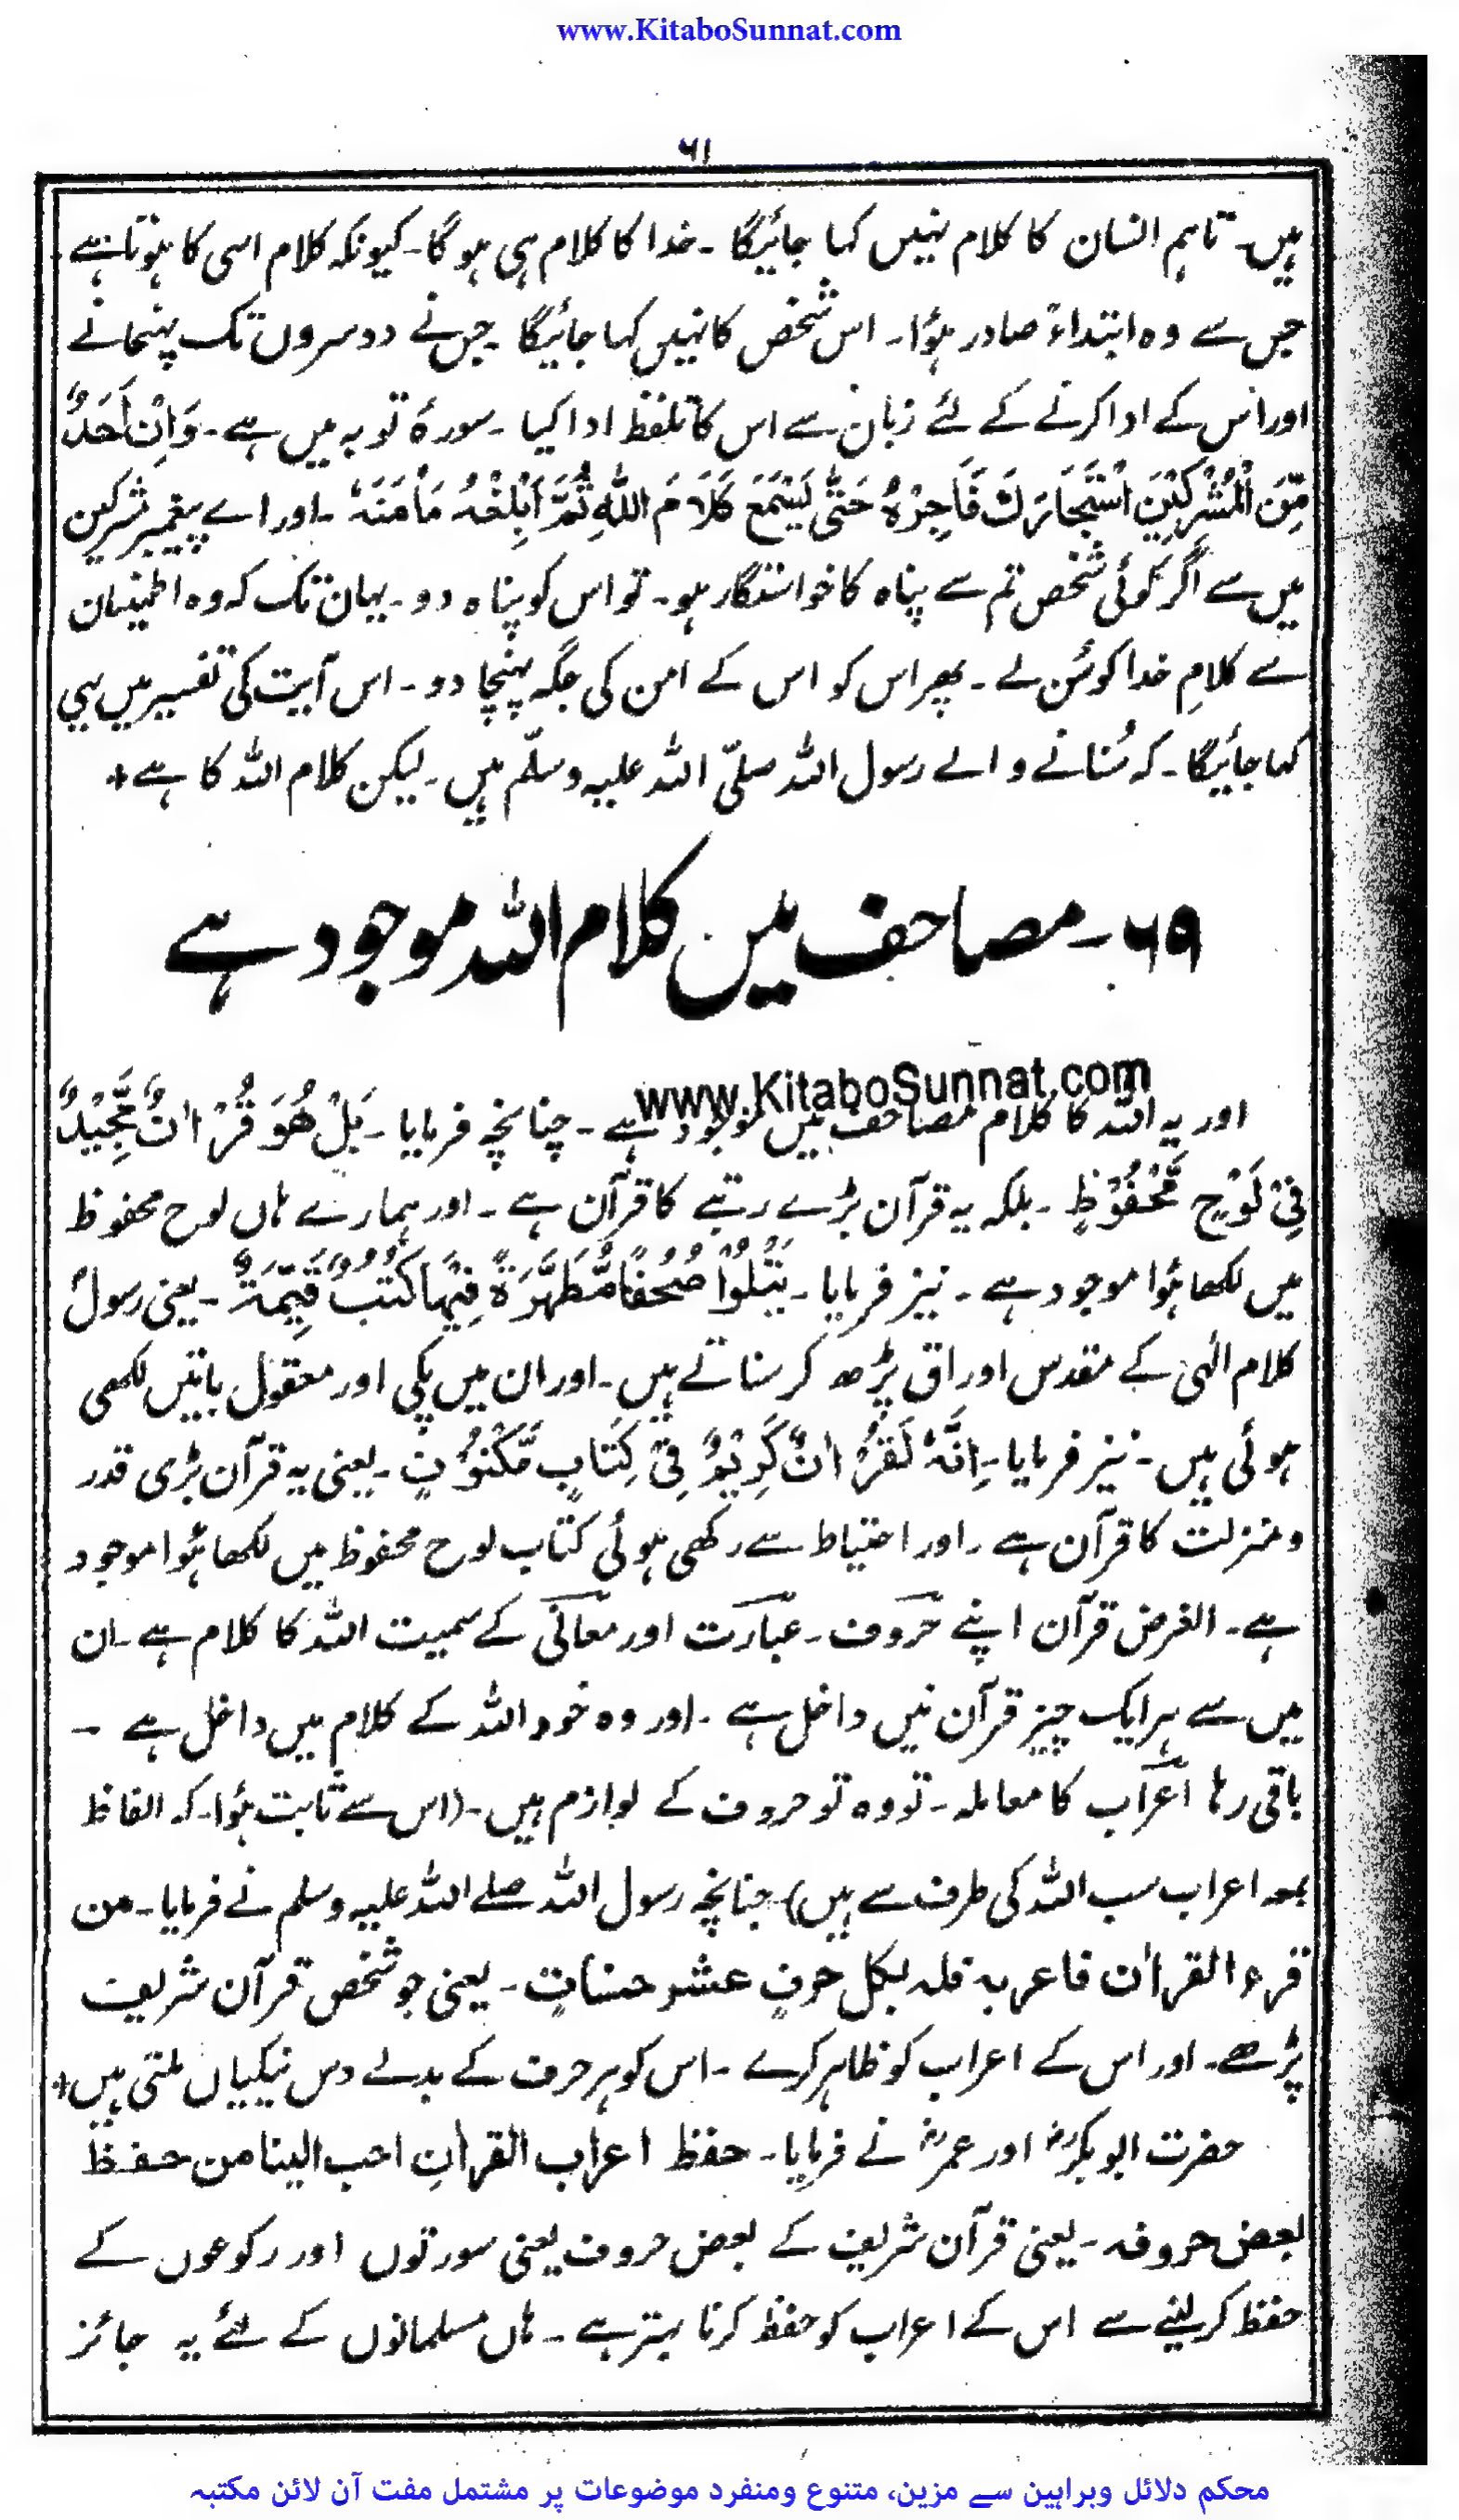 www.KitaboSunnat.com
۶۱
ہیں۔ تاہم انسان کا کلام نہیں کہا جائیگا ۔ خدا کا کلام ہی ہو گا۔ کیونکہ کلام اسی کا ہوتا ہے
جس سے وہ ابتداءً صادر ہؤا۔ اس شخص کا نہیں کہا جائیگا جس نے دوسروں تک پہنچانے
اور اس کے ادا کرنے کے لئے زبان سے اس کا تلفظ ادا کیا ۔ سورۂ توبہ میں ہے۔ وَاِنْ اَحَدٌ
مِّنَ الْمُشْرِكِيْنَ اسْتَجَارَكَ فَاَجِرْهُ حَتّٰى يَسْمَعَ كَلَامَ اللّٰهِ ثُمَّ اَبْلِغْهُ مَاْمَنَهٗ ۔ اور اے پیغمبر مشرکین
میں سے اگر کوئی شخص تم سے پناہ کا خواستگار ہو۔ تو اس کو پناہ دو۔ یہاں تک کہ وہ اطمینان
سے کلامِ خدا کو سُن لے ۔ پھر اس کو اس کے امن کی جگہ پہنچا دو ۔ اس آیت کی تفسیر میں یہی
کہا جائیگا۔ کہ سُنانے والے رسول اللہ صلّی اللہ علیہ وسلّم ہیں۔ لیکن کلام اللہ کا ہے +
۶۹۔ مصاحف میں کلام اللہ موجود ہے
www.KitaboSunnat.com
اور یہ اللہ کا کلام مصاحف میں موجود ہے ۔ چنانچہ فرمایا ۔ بَلْ هُوَ قُرْاٰنٌ مَّجِيْدٌ
فِيْ لَوْحٍ مَّحْفُوْظٍ ۔ بلکہ یہ قرآن بڑے رتبے کا قرآن ہے ۔ اور ہمارے ہاں لوح محفوظ
میں لکھا ہؤا موجود ہے ۔ نیز فرمایا ۔ يَتْلُوْا صُحُفًا مُّطَهَّرَةً فِيْهَا كُتُبٌ قَيِّمَةٌ ۔ یعنی رسولؐ
کلام الٰہی کے مقدس اوراق پڑھ کر سناتے ہیں۔ اور ان میں پکی اور معقول باتیں لکھی
ہوئی ہیں ۔ نیز فرمایا ۔ اِنَّهٗ لَقُرْاٰنٌ كَرِيْمٌ فِيْ كِتَابٍ مَّكْنُوْنٍ ۔ یعنی یہ قرآن بڑی قدر
و منزلت کا قرآن ہے ۔ اور احتیاط سے رکھی ہوئی کتاب لوح محفوظ میں لکھا ہؤا موجود
ہے۔ الغرض قرآن اپنے حروف ۔ عبارت اور معانی کے سمیت اللہ کا کلام ہے ۔ ان
میں سے ہر ایک چیز قرآن میں داخل ہے ۔ اور وہ خود اللہ کے کلام میں داخل ہے ۔
باقی رہا اعراب کا معاملہ ۔ تو وہ تو حروف کے لوازم ہیں ۔ (اس سے ثابت ہؤا۔ کہ الفاظ
بمعہ اعراب سب اللہ کی طرف سے ہیں) چنانچہ رسول اللہ صلے اللہ علیہ وسلم نے فرمایا ۔ من
قرء القراٰن فاعربه فله بكل حرفٍ عشر حسناتٍ ۔ یعنی جو شخص قرآن شریف
پڑھے۔ اور اس کے اعراب کو ظاہر کرے ۔ اس کو ہر حرف کے بدلے دس نیکیاں ملتی ہیں +
حضرت ابوبکرؓ اور عمرؓ نے فرمایا ۔ حفظ اعراب القراٰنِ احب الينا من حفظ
بعض حروفه ۔ یعنی قرآن شریف کے بعض حروف یعنی سورتوں اور رکوعوں کے
حفظ کر لینے سے اس کے اعراب کو حفظ کرنا بہتر ہے ۔ ہاں مسلمانوں کے لئے یہ جائز
محکم دلائل وبراہین سے مزین، متنوع ومنفرد موضوعات پر مشتمل مفت آن لائن مکتبہ